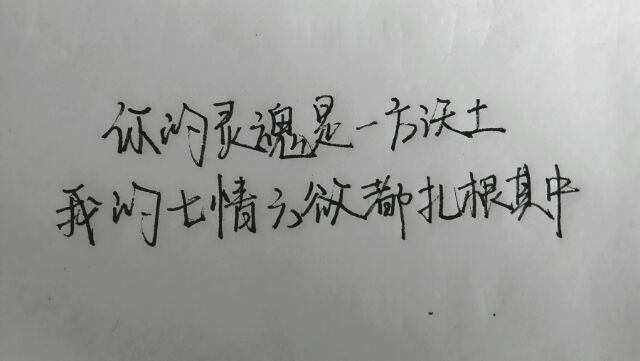 你的灵魂是一方沃土
我的七情六欲都扎根其中